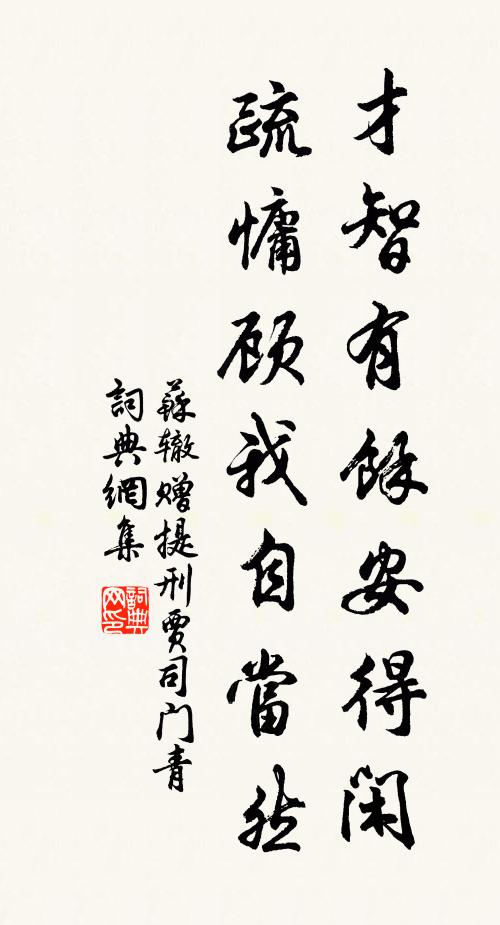 才智有餘安得閑
疏慵顾我自當然
蘇辙赠提刑賈司门青
詞典網集
詞典网印